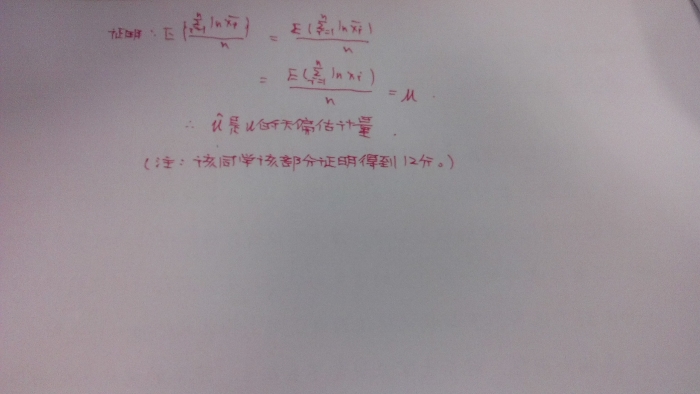 证明: E(\frac{\sum_{i=1}^{n} \ln x_i}{n}) = \frac{E(\sum_{i=1}^{n} \ln x_i)}{n}
= \frac{E(\sum_{i=1}^{n} \ln x_i)}{n} = μ.
∴ û是u的无偏估计量.
(注: 该同学该部分证明得到12分。)